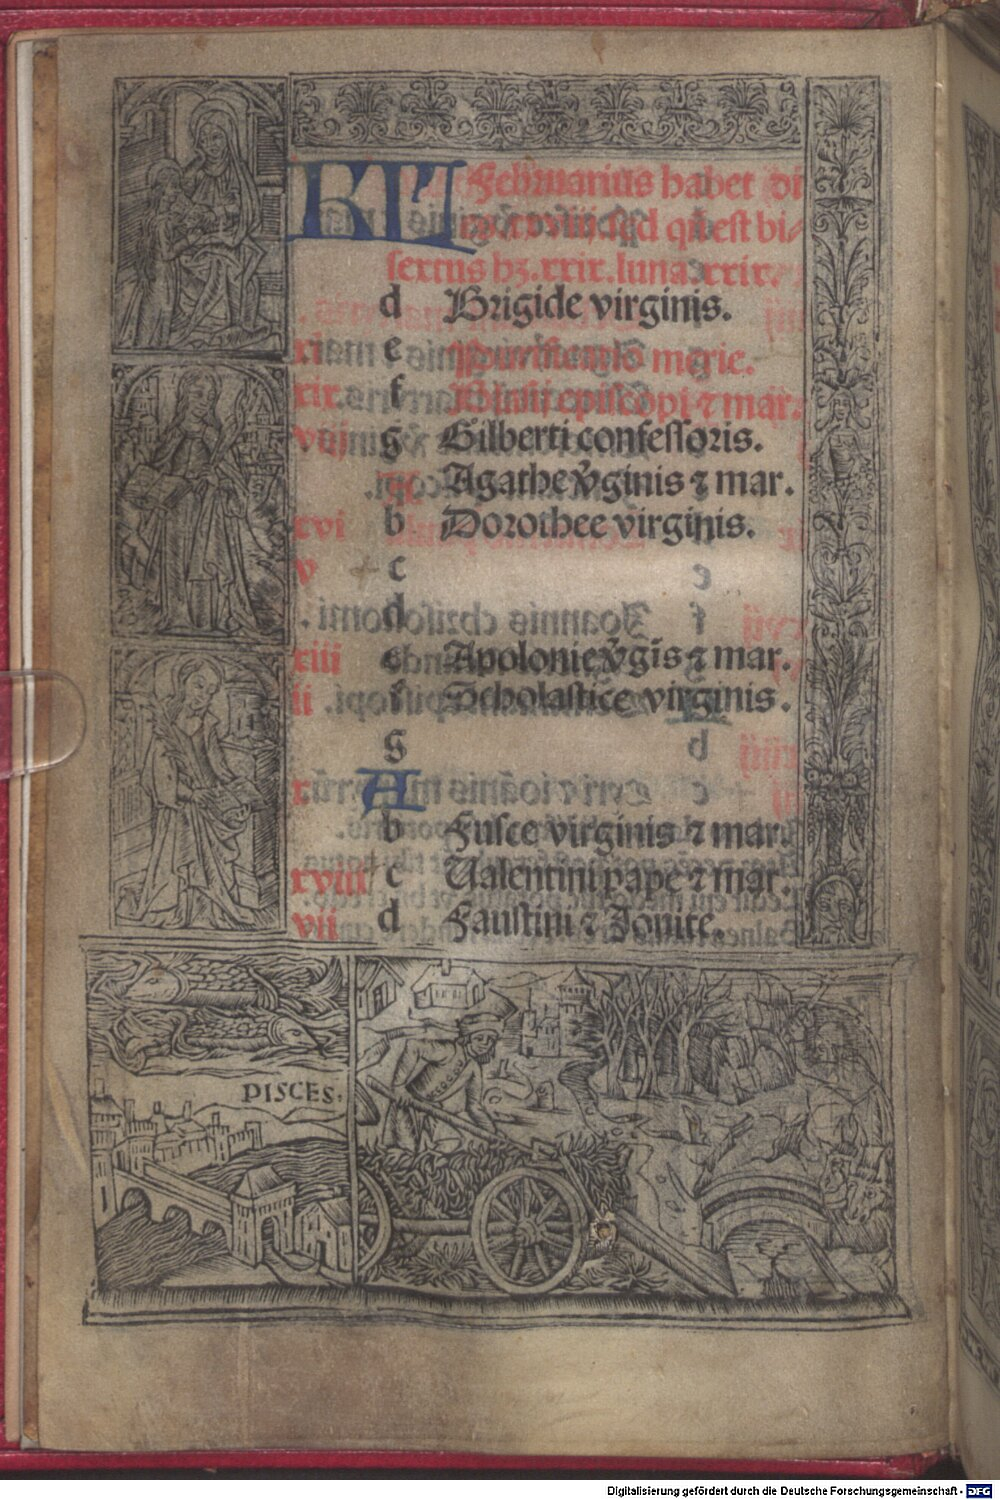 KL Februarius habet di
es.xxviij. sed qn̄ est bi-
sextus hʒ.xxix.luna.xxix.
d Brigide virginis.
xi e Purificatio marie.
xix f Blasij episcopi ⁊ mar.
viij g Gilberti confessoris.
Agathe v̄ginis ⁊ mar.
xvi b Dorothee virginis.
v c
d
xiii e Apolonie v̄gīs ⁊ mar.
ii f Scholastice virginis.
g
x A
b Fusce virginis ⁊ mar.
xviii c Ualentini pape ⁊ mar.
vii d Faustini ⁊ Jouite.
PISCES.
Digitalisierung gefördert durch die Deutsche Forschungsgemeinschaft - DFG